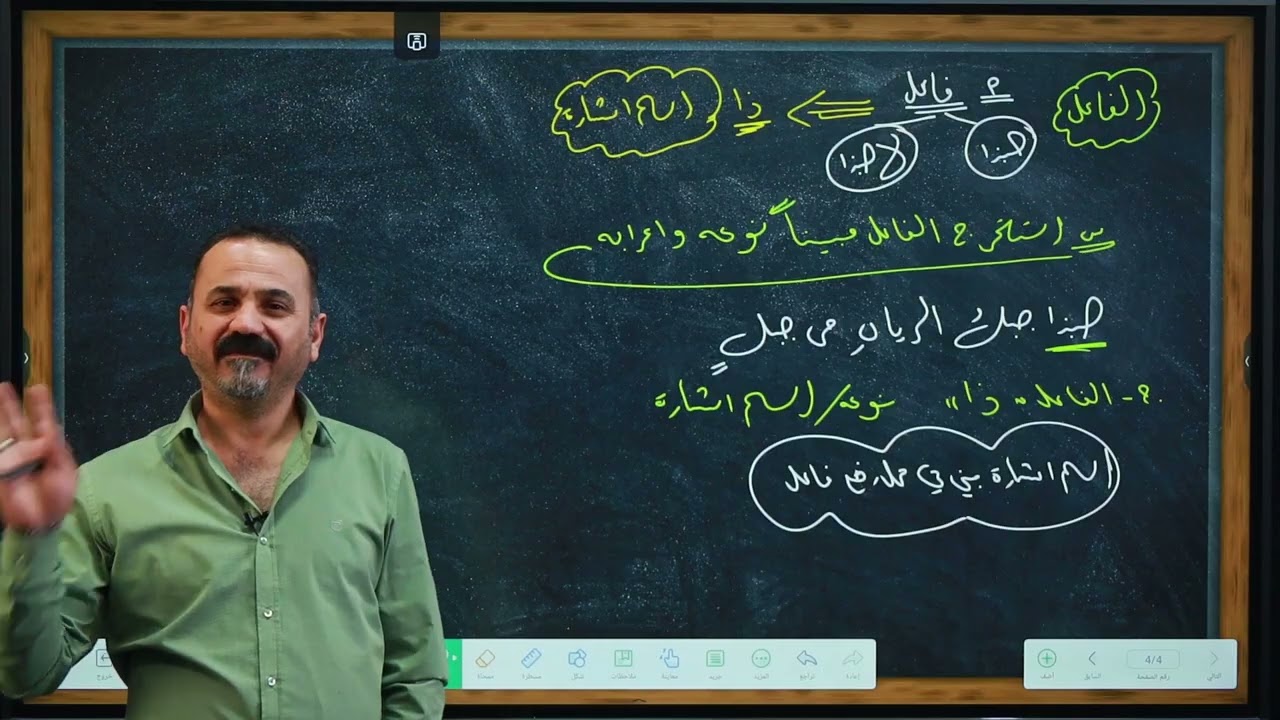 الفاعل
م فاعل ⇐ ذا اسم اشارة
حبذا لا حبذا
س استخرج الفاعل مبيناً نوعه واعرابه
حبذا جبلُ الريانِ من جبل
ج- الفاعل "ذا" نوعه/ اسم اشارة
اسم اشارة مبني في محل رفع فاعل
خروج
ممحاة
مسطرة
شكل
ملاحظات
معاينة
جديد
المزيد
تراجع
إعادة
أضف
السابق
4/4
رقم الصفحة
التالي